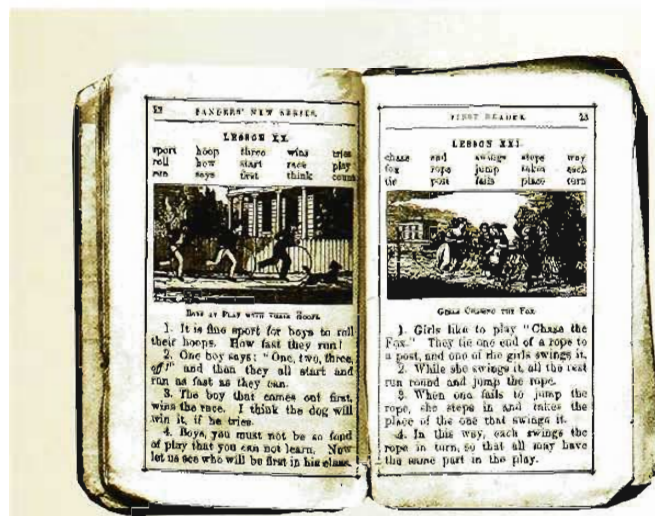 22 SANDERS' NEW SERIES.
LESSON XX.
sport hoop three wins tries
roll how start race play
run says first think count
BOYS AT PLAY WITH THEIR HOOPS.
1. It is fine sport for boys to roll
their hoops. How fast they run!
2. One boy says: "One, two, three,
off!" and then they all start and
run as fast as they can.
3. The boy that comes out first,
wins the race. I think the dog will
win it, if he tries.
4. Boys, you must not be so fond
of play that you can not learn. Now
let us see who will be first in his class.
FIRST READER. 23
LESSON XXI.
chase end swings steps way
fox rope jump takes each
tie post fails place turn
GIRLS CHASING THE FOX.
1. Girls like to play "Chase the
Fox." They tie one end of a rope to
a post, and one of the girls swings it.
2. While she swings it, all the rest
run round and jump the rope.
3. When one fails to jump the
rope, she steps in and takes the
place of the one that swings it.
4. In this way, each swings the
rope in turn, so that all may have
the same part in the play.